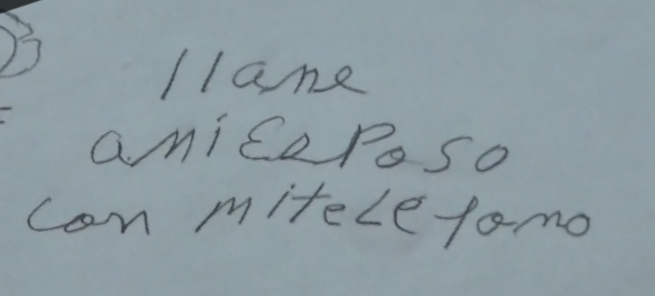 llame
a mi Esposo
con mi telefono